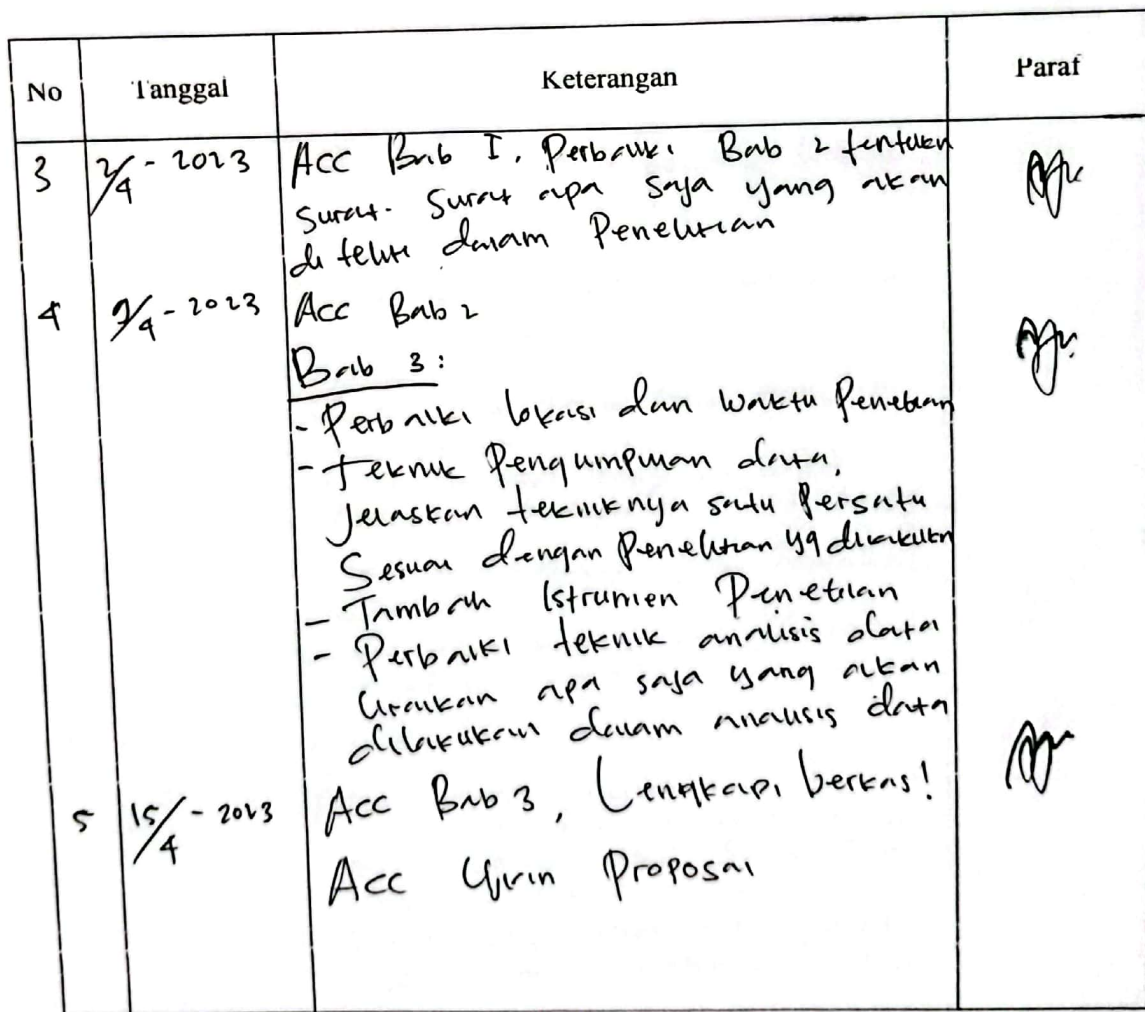 No Tanggal Keterangan Paraf
3 2/4 - 2023 Acc Bab I, Perbaiki Bab 2 tentukan
Surat-Surat apa saja yang akan
di teliti dalam Penelitian
4 9/4 - 2023 Acc Bab 2
Bab 3:
- Perbaiki lokasi dan waktu Penelitian
- Teknik Pengumpulan data,
Jelaskan tekniknya satu Persatu
Sesuai dengan Penelitian yg dilakukan
- Tambah Istrumen Penelitian
- Perbaiki teknik analisis data
Uraikan apa saja yang akan
dilakukan dalam analisis data
5 15/4 - 2023 Acc Bab 3, Lengkapi berkas!
Acc Ujian Proposal